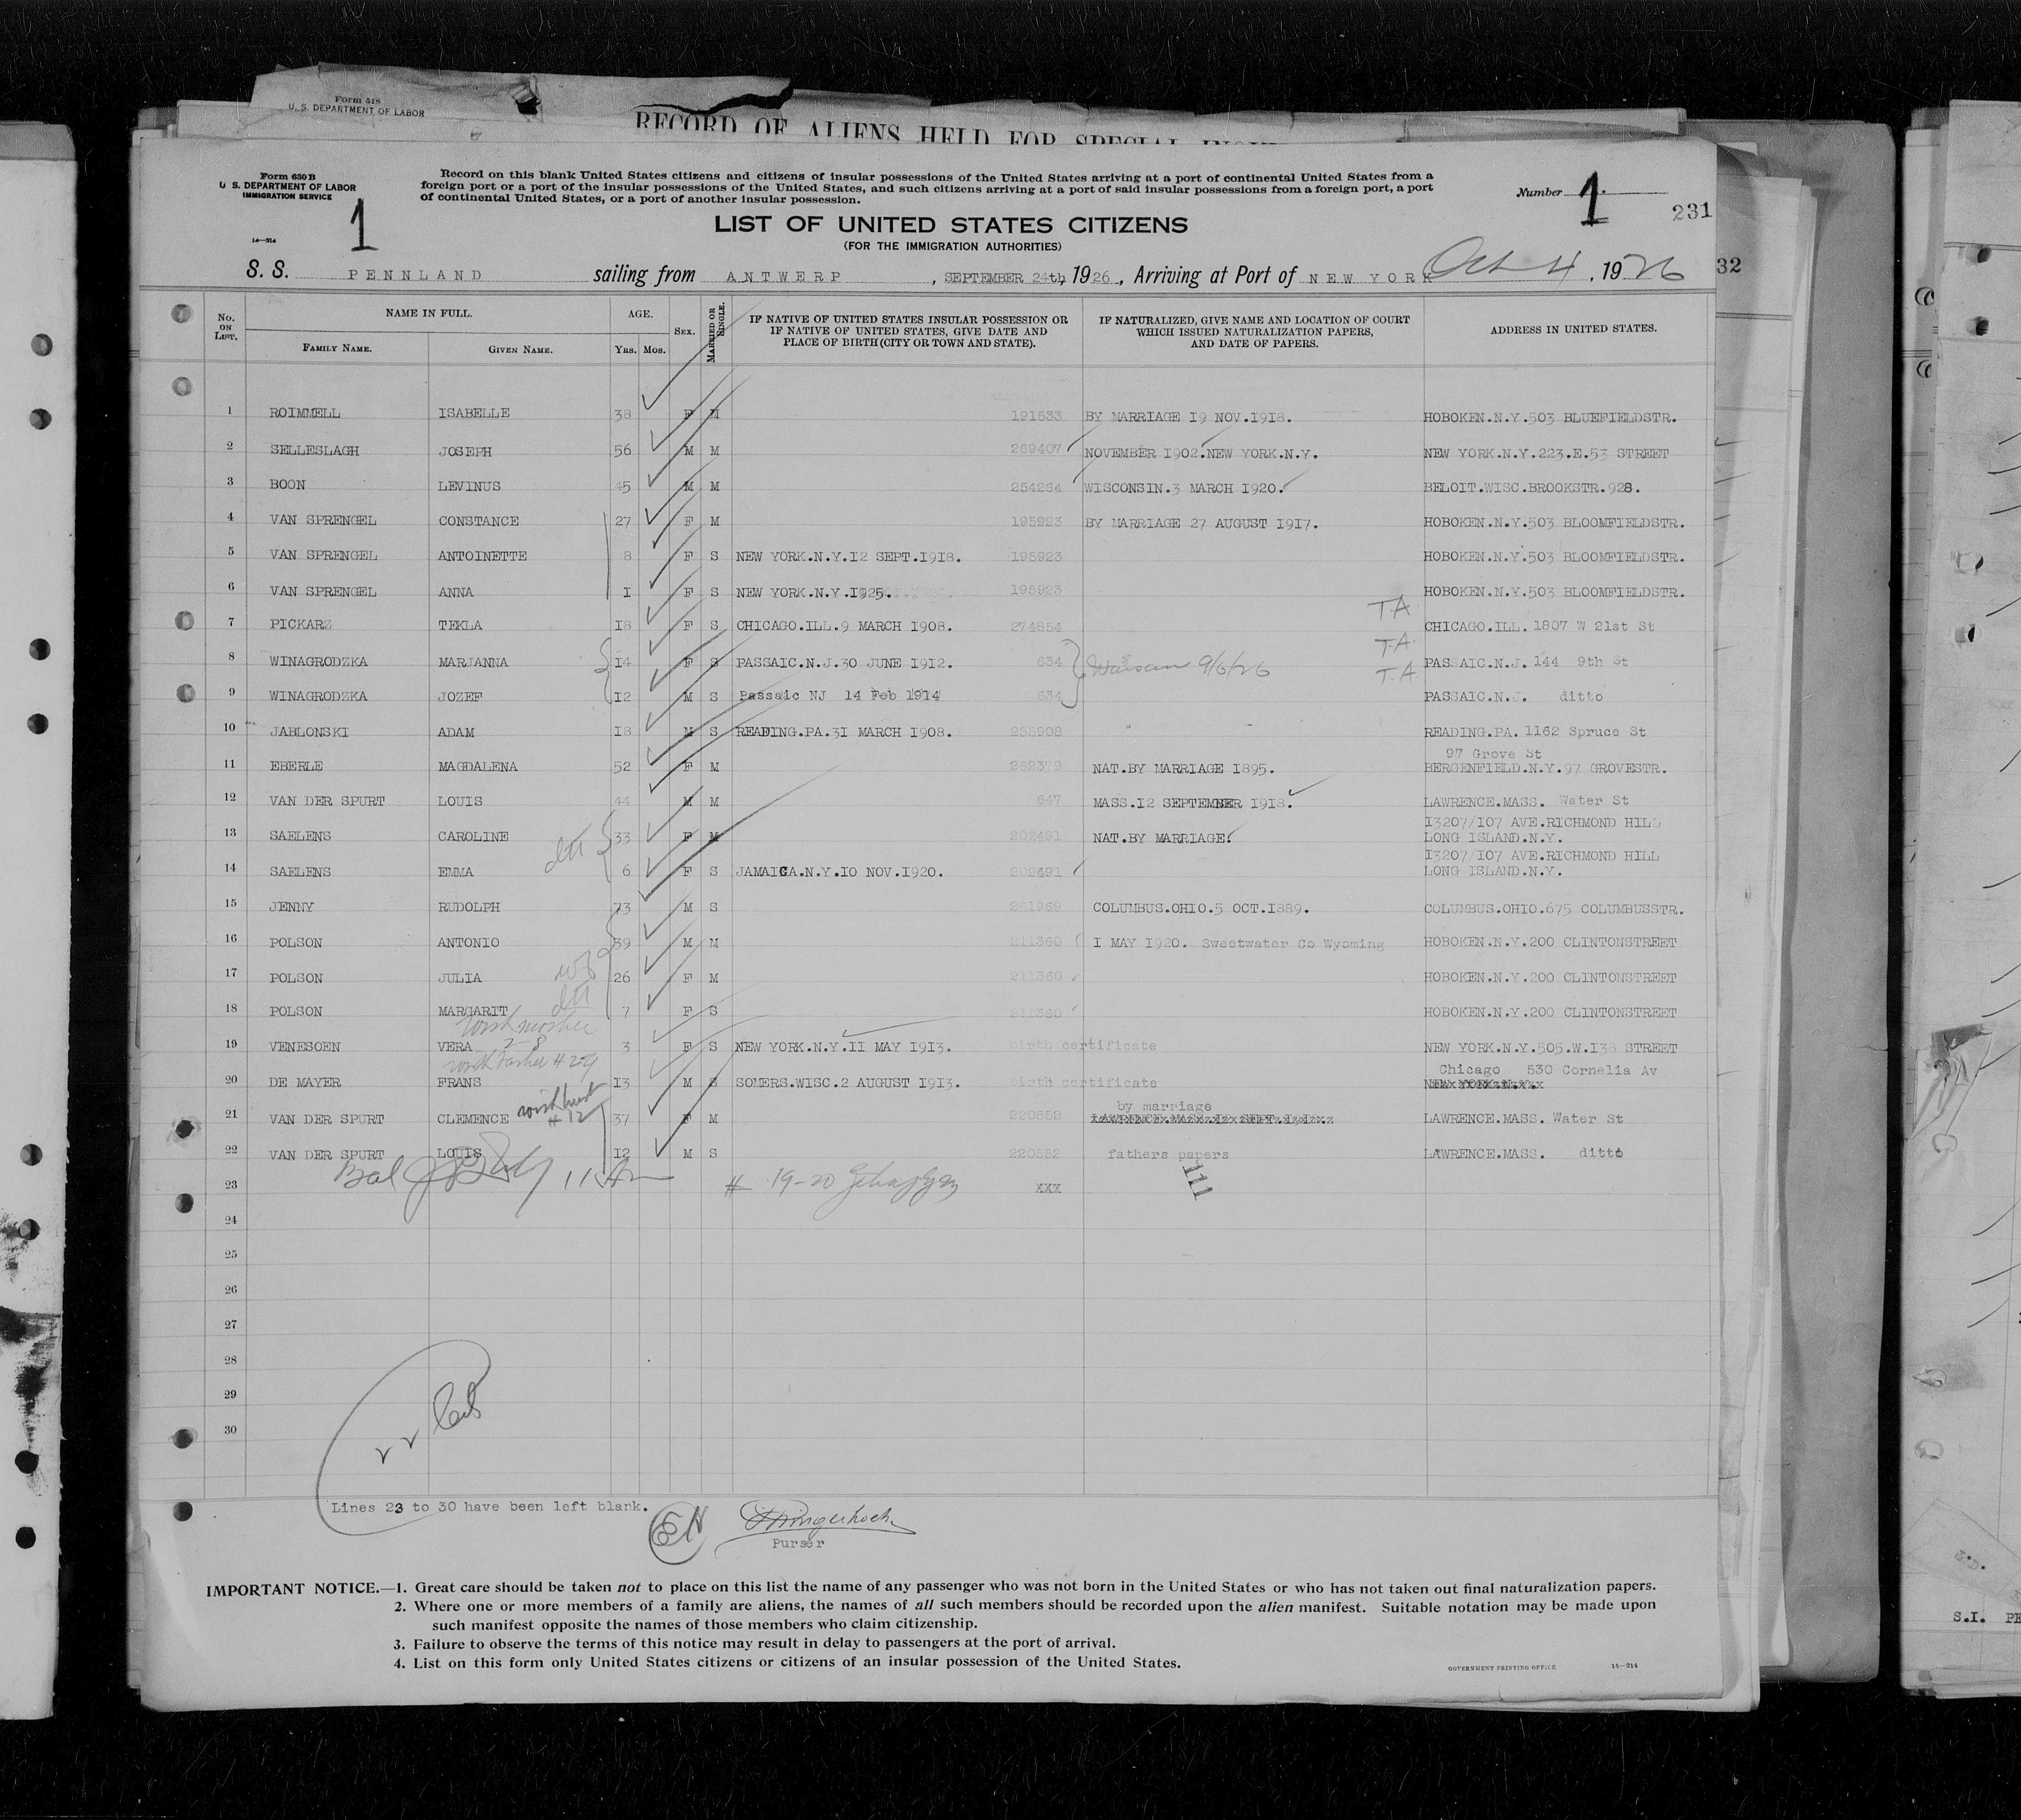 Form 518
U. S. DEPARTMENT OF LABOR
RECORD OF ALIENS HELD FOR SPECIAL
Form 630 B
U. S. DEPARTMENT OF LABOR
IMMIGRATION SERVICE
14—214
1
Record on this blank United States citizens and citizens of insular possessions of the United States arriving at a port of continental United States from a
foreign port or a port of the insular possessions of the United States, and such citizens arriving at a port of said insular possessions from a foreign port, a port
of continental United States, or a port of another insular possession.
Number 1
231
LIST OF UNITED STATES CITIZENS
(FOR THE IMMIGRATION AUTHORITIES)
S. S. PENNLAND sailing from ANTWERP, SEPTEMBER 24th, 1926, Arriving at Port of NEW YORK Oct 4, 1926
32
No. ON LIST. NAME IN FULL. FAMILY NAME. GIVEN NAME. AGE. YRS. MOS. SEX. MARRIED OR SINGLE. IF NATIVE OF UNITED STATES INSULAR POSSESSION OR IF NATIVE OF UNITED STATES, GIVE DATE AND PLACE OF BIRTH (CITY OR TOWN AND STATE). IF NATURALIZED, GIVE NAME AND LOCATION OF COURT WHICH ISSUED NATURALIZATION PAPERS, AND DATE OF PAPERS. ADDRESS IN UNITED STATES.
1 ROIMMELL ISABELLE 38 F M 191533 BY MARRIAGE I9 NOV.I9I8. HOBOKEN.N.Y.503 BLUEFIELDSTR.
2 SELLESLAGH JOSEPH 56 M M 269407 NOVEMBER I902.NEW YORK.N.Y. NEW YORK.N.Y.223.E.53 STREET
3 BOON LEVINUS 45 M M 254264 WISCONSIN.3 MARCH I920. BELOIT.WISC.BROOKSTR.928.
4 VAN SPRENGEL CONSTANCE 27 F M 195923 BY MARRIAGE 27 AUGUST I9I7. HOBOKEN.N.Y.503 BLOOMFIELDSTR.
5 VAN SPRENGEL ANTOINETTE 8 F S NEW YORK.N.Y.I2 SEPT.I9I8. 195923 HOBOKEN.N.Y.503 BLOOMFIELDSTR.
6 VAN SPRENGEL ANNA I F S NEW YORK.N.Y.I925. 195923 HOBOKEN.N.Y.503 BLOOMFIELDSTR.
7 PICKARZ TEKLA I8 F S CHICAGO.ILL.9 MARCH I908. 274854 T.A. CHICAGO.ILL. 1807 W 21st St
8 WINAGRODZKA MARJANNA I4 F S PASSAIC.N.J.30 JUNE I9I2. 634 Warsaw 9/6/26 T.A. PASSAIC.N.J. 144 9th St
9 WINAGRODZKA JOZEF I2 M S Passaic NJ 14 Feb 1914 634 T.A. PASSAIC.N.J. ditto
10 JABLONSKI ADAM I8 M S READING.PA.3I MARCH I908. 255908 READING.PA. 1162 Spruce St
97 Grove St
11 EBERLE MAGDALENA 52 F M 262379 NAT.BY MARRIAGE I895. BERGENFIELD.N.Y.97 GROVESTR.
12 VAN DER SPURT LOUIS 44 M M 647 MASS.I2 SEPTEMBER I9I8. LAWRENCE.MASS. Water St
I3207/I07 AVE.RICHMOND HILL
13 SAELENS CAROLINE 33 F M 202491 NAT.BY MARRIAGE. LONG ISLAND.N.Y.
I3207/I07 AVE.RICHMOND HILL
14 SAELENS EMMA 6 F S JAMAICA.N.Y.IO NOV.I920. 202491 LONG ISLAND.N.Y.
15 JENNY RUDOLPH 73 M S 261969 COLUMBUS.OHIO.5 OCT.I889. COLUMBUS.OHIO.675 COLUMBUSSTR.
16 POLSON ANTONIO 39 M M 211360 I MAY I920. Sweetwater Co Wyoming HOBOKEN.N.Y.200 CLINTONSTREET
17 POLSON JULIA 26 F M 211360 HOBOKEN.N.Y.200 CLINTONSTREET
18 POLSON MARGARIT 7 F S 211360 HOBOKEN.N.Y.200 CLINTONSTREET
with mother
19 VENESOEN VERA 3 F S NEW YORK.N.Y.II MAY I9I3. birth certificate NEW YORK.N.Y.505.W.I38 STREET
with Father #29
Chicago 530 Cornelia Av
20 DE MAYER FRANS I3 M S SOMERS.WISC.2 AUGUST I9I3. birth certificate NEW YORK.N.Y.
by marriage
21 VAN DER SPURT CLEMENCE with husb #12 37 F M 220552 LAWRENCE.MASS.I2 SEPT. LAWRENCE.MASS. Water St
22 VAN DER SPURT LOUIS I2 M S 220552 fathers papers LAWRENCE.MASS. ditto
23 # 19-20 XXX
24
25
26
27
28
29
30
Lines 23 to 30 have been left blank.
EH
Purser
IMPORTANT NOTICE.—1. Great care should be taken not to place on this list the name of any passenger who was not born in the United States or who has not taken out final naturalization papers.
2. Where one or more members of a family are aliens, the names of all such members should be recorded upon the alien manifest. Suitable notation may be made upon
such manifest opposite the names of those members who claim citizenship.
3. Failure to observe the terms of this notice may result in delay to passengers at the port of arrival.
4. List on this form only United States citizens or citizens of an insular possession of the United States.
GOVERNMENT PRINTING OFFICE 14—214
S.I. PE